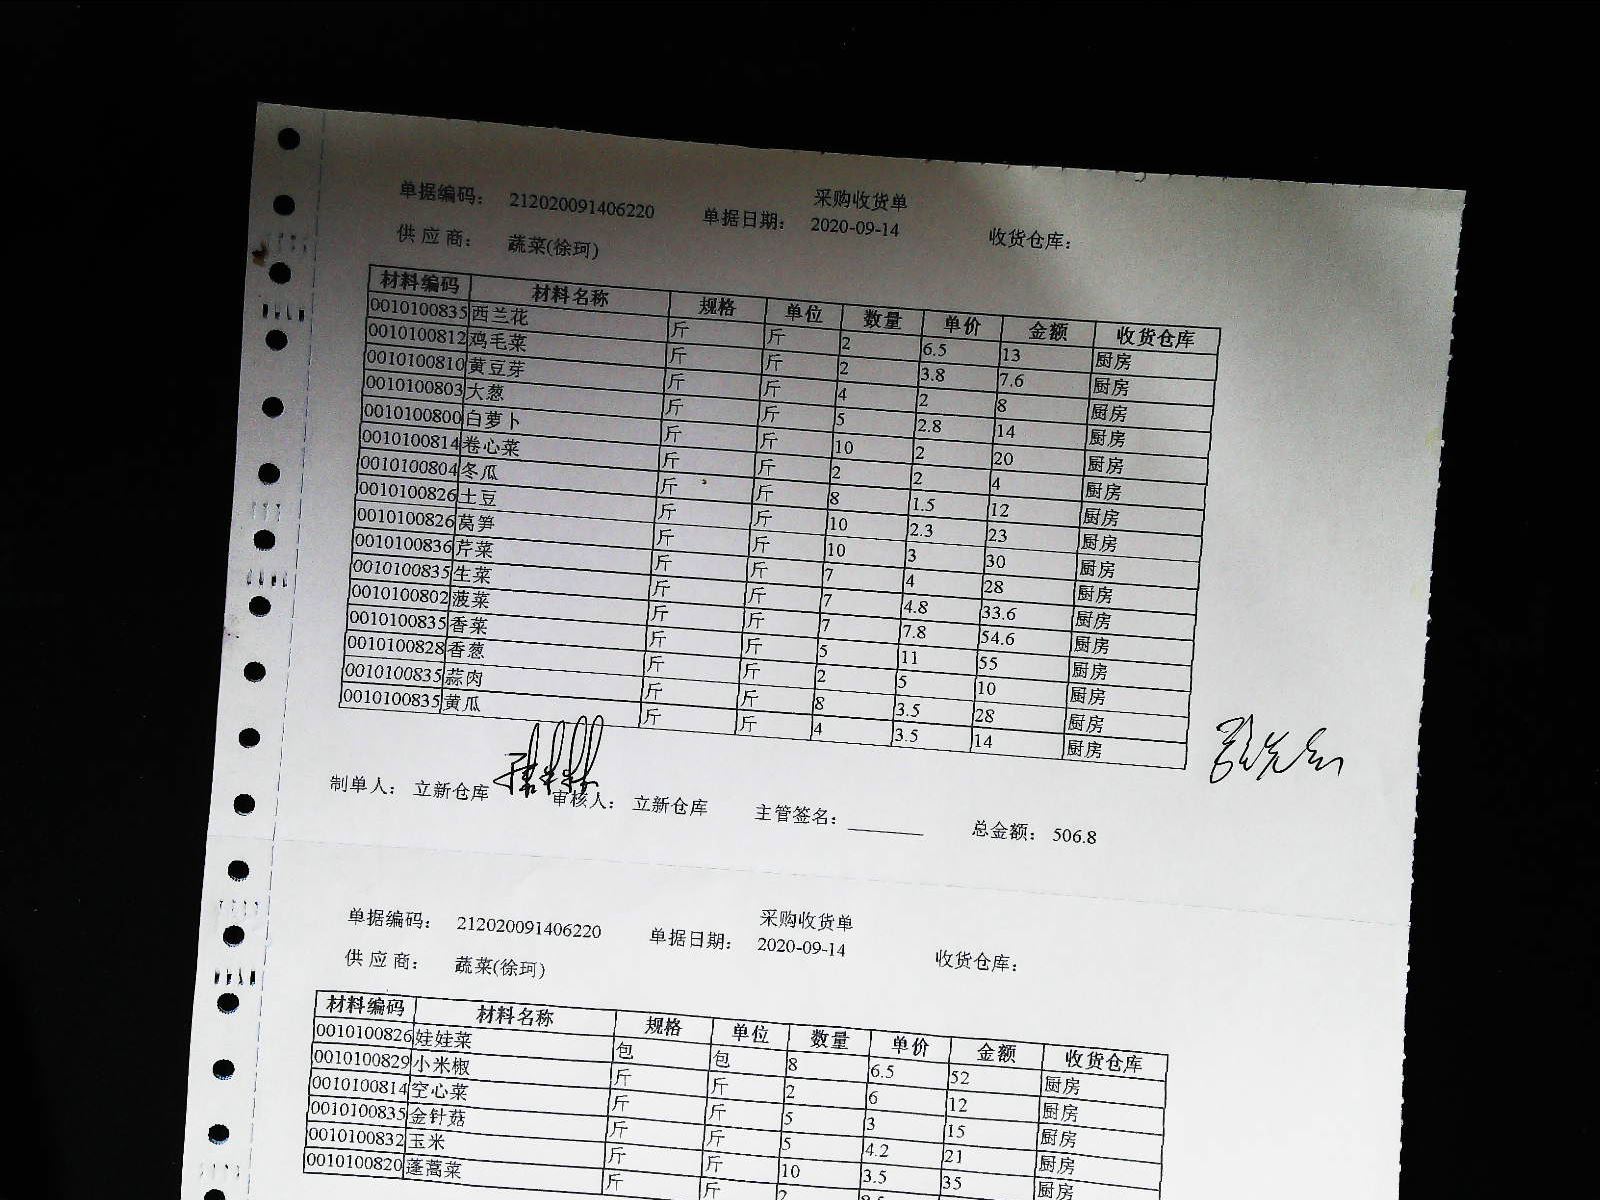 采购收货单
单据编码： 212020091406220 单据日期： 2020-09-14 收货仓库：
供应商： 蔬菜(徐珂)
材料编码 材料名称 规格 单位 数量 单价 金额 收货仓库
0010100835 西兰花 斤 斤 2 6.5 13 厨房
0010100812 鸡毛菜 斤 斤 2 3.8 7.6 厨房
0010100810 黄豆芽 斤 斤 4 2 8 厨房
0010100803 大葱 斤 斤 5 2.8 14 厨房
0010100800 白萝卜 斤 斤 10 2 20 厨房
0010100814 卷心菜 斤 斤 2 2 4 厨房
0010100804 冬瓜 斤 斤 8 1.5 12 厨房
0010100826 土豆 斤 斤 10 2.3 23 厨房
0010100826 莴笋 斤 斤 10 3 30 厨房
0010100836 芹菜 斤 斤 7 4 28 厨房
0010100835 生菜 斤 斤 7 4.8 33.6 厨房
0010100802 菠菜 斤 斤 7 7.8 54.6 厨房
0010100835 香菜 斤 斤 5 11 55 厨房
0010100828 香葱 斤 斤 2 5 10 厨房
0010100835 蒜肉 斤 斤 8 3.5 28 厨房
0010100835 黄瓜 斤 斤 4 3.5 14 厨房
制单人： 立新仓库 审核人： 立新仓库 主管签名： 总金额： 506.8
采购收货单
单据编码： 212020091406220 单据日期： 2020-09-14 收货仓库：
供应商： 蔬菜(徐珂)
材料编码 材料名称 规格 单位 数量 单价 金额 收货仓库
0010100826 娃娃菜 包 包 8 6.5 52 厨房
0010100829 小米椒 斤 斤 2 6 12 厨房
0010100814 空心菜 斤 斤 5 3 15 厨房
0010100835 金针菇 斤 斤 5 4.2 21 厨房
0010100832 玉米 斤 斤 10 3.5 35 厨房
0010100820 蓬蒿菜 斤 斤